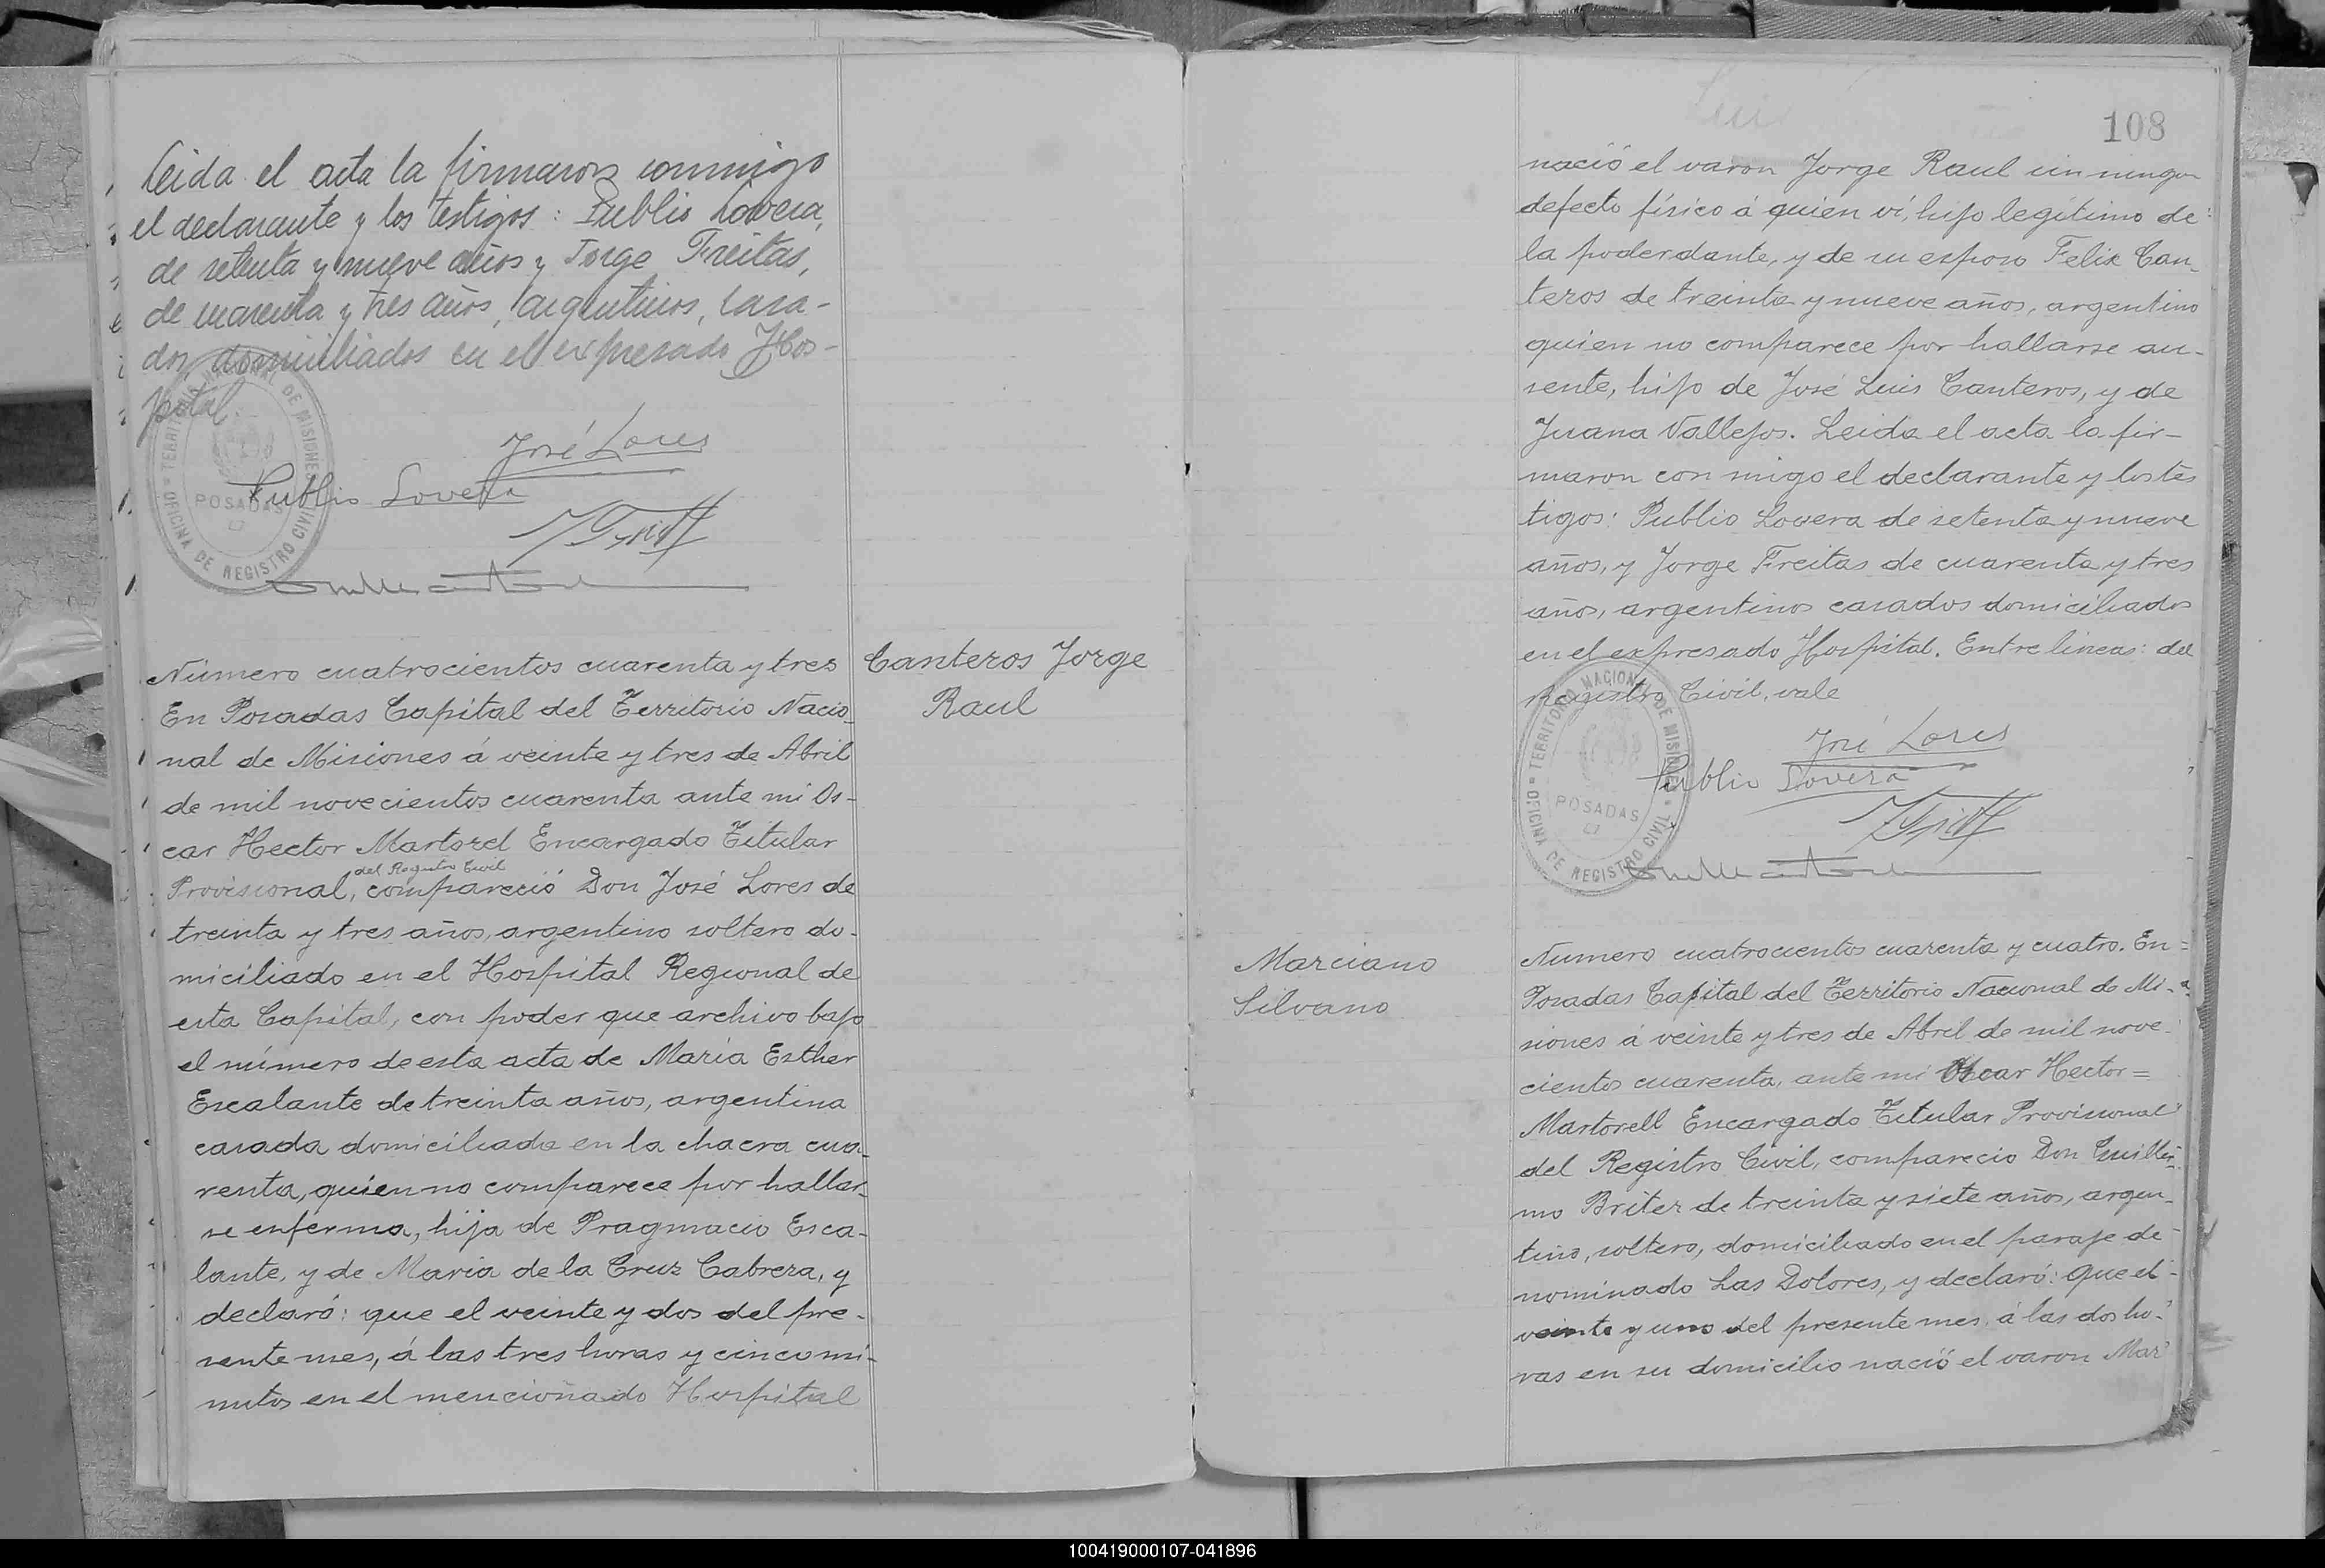 Leida el acta la firmaron conmigo
el declarante y los testigos: Publio Lovera,
de setenta y nueve años y Jorge Freitas,
de cuarenta y tres años, argentinos, casa-
dos, domiciliados en el expresado Hos-
pital.
José Lores
Publio Lovera
TERRITORIO NACIONAL DE MISIONES
POSADAS
OFICINA DE REGISTRO CIVIL
Número cuatrocientos cuarenta y tres
En Posadas Capital del Territorio Nacio-
nal de Misiones á veinte y tres de Abril
de mil novecientos cuarenta ante mi Os-
car Hector Martorel Encargado Titular
del Registro Civil
Provisional, compareció Don José Lores de
treinta y tres años, argentino soltero do-
miciliado en el Hospital Regional de
esta Capital, con poder que archivo bajo
el número de esta acta de María Esther
Escalante de treinta años, argentina
casada domiciliada en la chacra cua-
renta, quien no comparece por hallar-
se enferma, hija de Pragmacio Esca-
lante, y de Maria de la Cruz Cabrera, y
declaró: que el veinte y dos del pre-
sente mes, á las tres horas y cinco mi-
nutos en el mencionado Hospital
Canteros Jorge
Raul
108
nació el varon Jorge Raul sin ningun
defecto físico á quien ví, hijo legítimo de
la poderdante, y de su esposo Felix Can-
teros de treinta y nueve años, argentino
quien no comparece por hallarse au-
sente, hijo de José Luis Canteros, y de
Juana Vallejos. Leida el acta la fir-
maron con migo el declarante y los tes
tigos: Publio Lovera de setenta y nueve
años, y Jorge Freitas de cuarenta y tres
años, argentinos casados domiciliados
en el expresado Hospital. Entre lineas: del
Registro Civil, vale
José Lores
Publio Lovera
TERRITORIO NACIONAL DE MISIONES
POSADAS
OFICINA DE REGISTRO CIVIL
Marciano
Silvano
Numero cuatrocientos cuarenta y cuatro. En =
Posadas Capital del Territorio Nacional de Mi-
siones á veinte y tres de Abril de mil nove-
cientos cuarenta, ante mi Oscar Hector =
Martorell Encargado Titular Provisional
del Registro Civil, comparecio Don Guiller-
mo Briter de treinta y siete años, argen-
tino, soltero, domiciliado en el paraje de-
nominado Las Dolores, y declaró: que el
veinte y uno del presente mes, á las dos ho-
ras en su domicilio nació el varon Mar
100419000107-041896